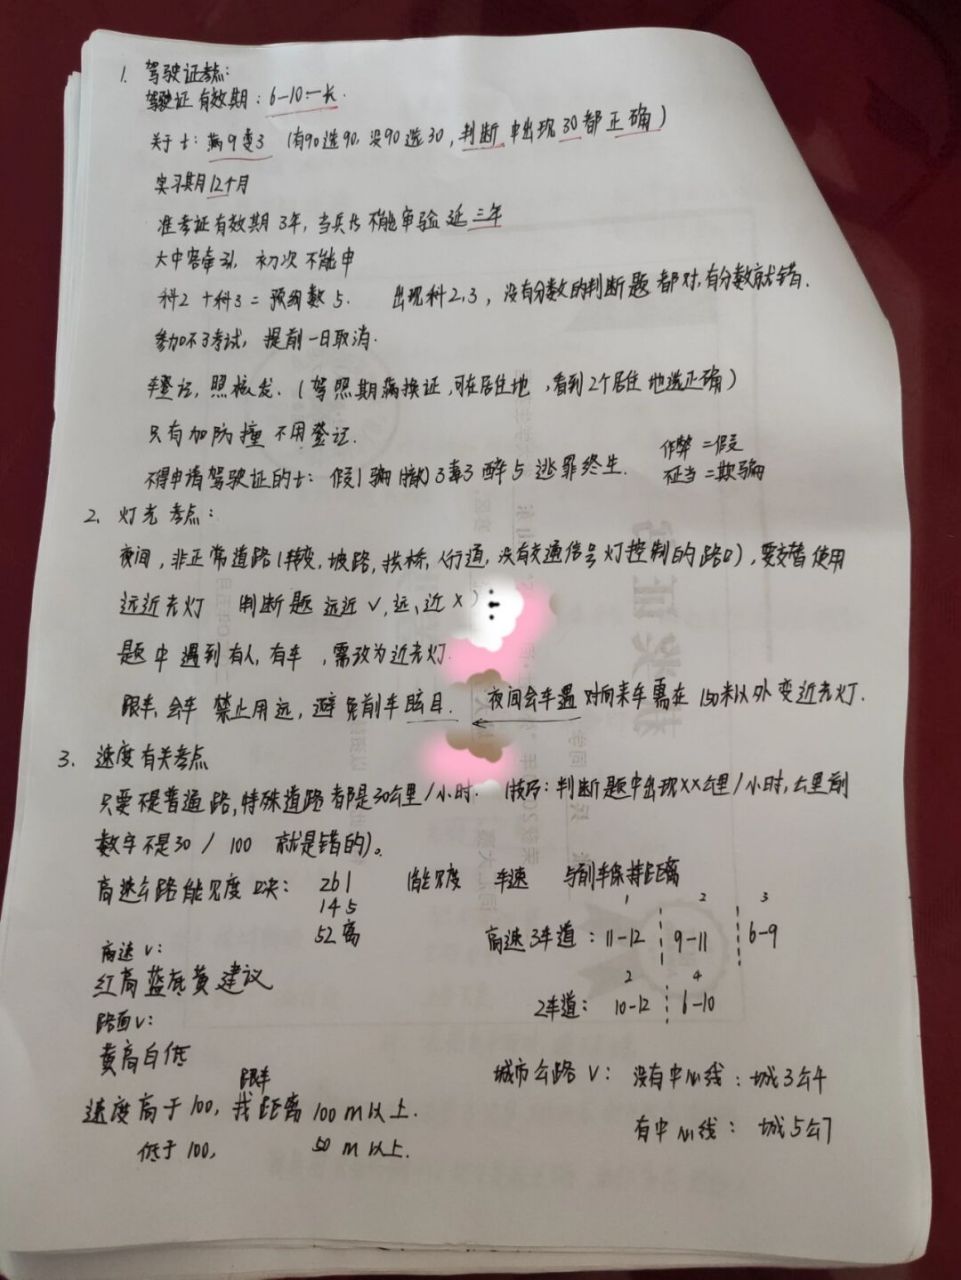 1. 驾驶证考点:
驾驶证有效期:6-10-长.
关于十:满9变3 (有90选90,没90选30,判断中出现30都正确)
实习期12个月
准考证有效期3年,当兵传不能审验延三年
大中客牵引,初次不能申
科2+科3=预约数5. 出现科2,3,没有分数的判断题都对,有分数就错.
参加不了考试,提前一日取消.
车登记,照核发.(驾照期满换证,可在居住地,看到2个居住地选正确)
只有加防撞不用登记.
不得申请驾驶证的十:假1骗撤3毒3醉5逃罪终生.
作弊=假
不正当=欺骗
2. 灯光考点:
夜间,非正常道路(转弯,坡路,拱桥,人行道,没有交通信号灯控制的路口),要交替使用
远近光灯 判断题 远近√,远、近×)
题中遇到有人,有车,需改为近光灯.
跟车,会车禁止用远,避免前车眩目. ← 夜间会车遇对向来车需在150米以外变近光灯.
3. 速度有关考点
只要不是普通路,特殊道路都是30公里/小时. (技巧:判断题中出现XX公里/小时,公里前
数字不是30/100 就是错的)。
高速公路能见度口诀: 261 能见度 车速 与前车保持距离
145
52离
高速3车道:11-12 9-11 6-9
1 2 3
2车道:10-12 6-10
2 4
高速V:
红高蓝底黄建议
路面V:
黄高白低
城市公路V: 没有中心线:城3公4
有中心线: 城5公7
跟车
速度高于100,我距离100m以上.
低于100, 50m以上.